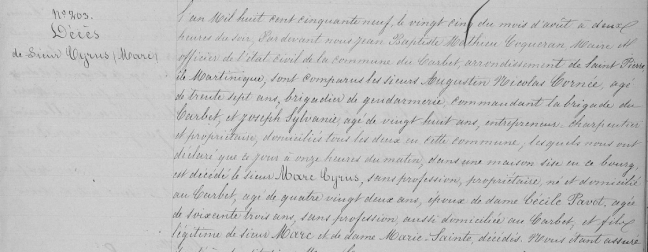 N° 203.
Décès
de Sieur Cyrus (Marc)
L'an Mil huit cent cinquante neuf, le vingt cinq du mois d'août à deux
heures du soir, Pardevant nous Jean Baptiste Mathieu Coqueran, Maire et
officier de l'état civil de la commune du Carbet, arrondissement de Saint Pierre
île Martinique, sont comparus les sieurs Augustin Nicolas Cornée, agé
de trente sept ans, brigadier de gendarmerie, commandant la brigade du
Carbet, et Joseph Sylvanie, agé de vingt huit ans, entrepreneur charpentier
et propriétaire, domiciliés tous les deux en cette commune, lesquels nous ont
déclaré que ce jour à onze heures du matin, dans une maison sise en ce bourg,
est décédé le sieur Marc Cyrus, sans profession, propriétaire, né et domicilié
au Carbet, agé de quatre vingt deux ans, époux de dame Cécile Pavot, agée
de soixante trois ans, sans profession, aussi domiciliée au Carbet, et fils
légitime de sieur Marc et de dame Marie Sainte, décédés. Nous étant assuré